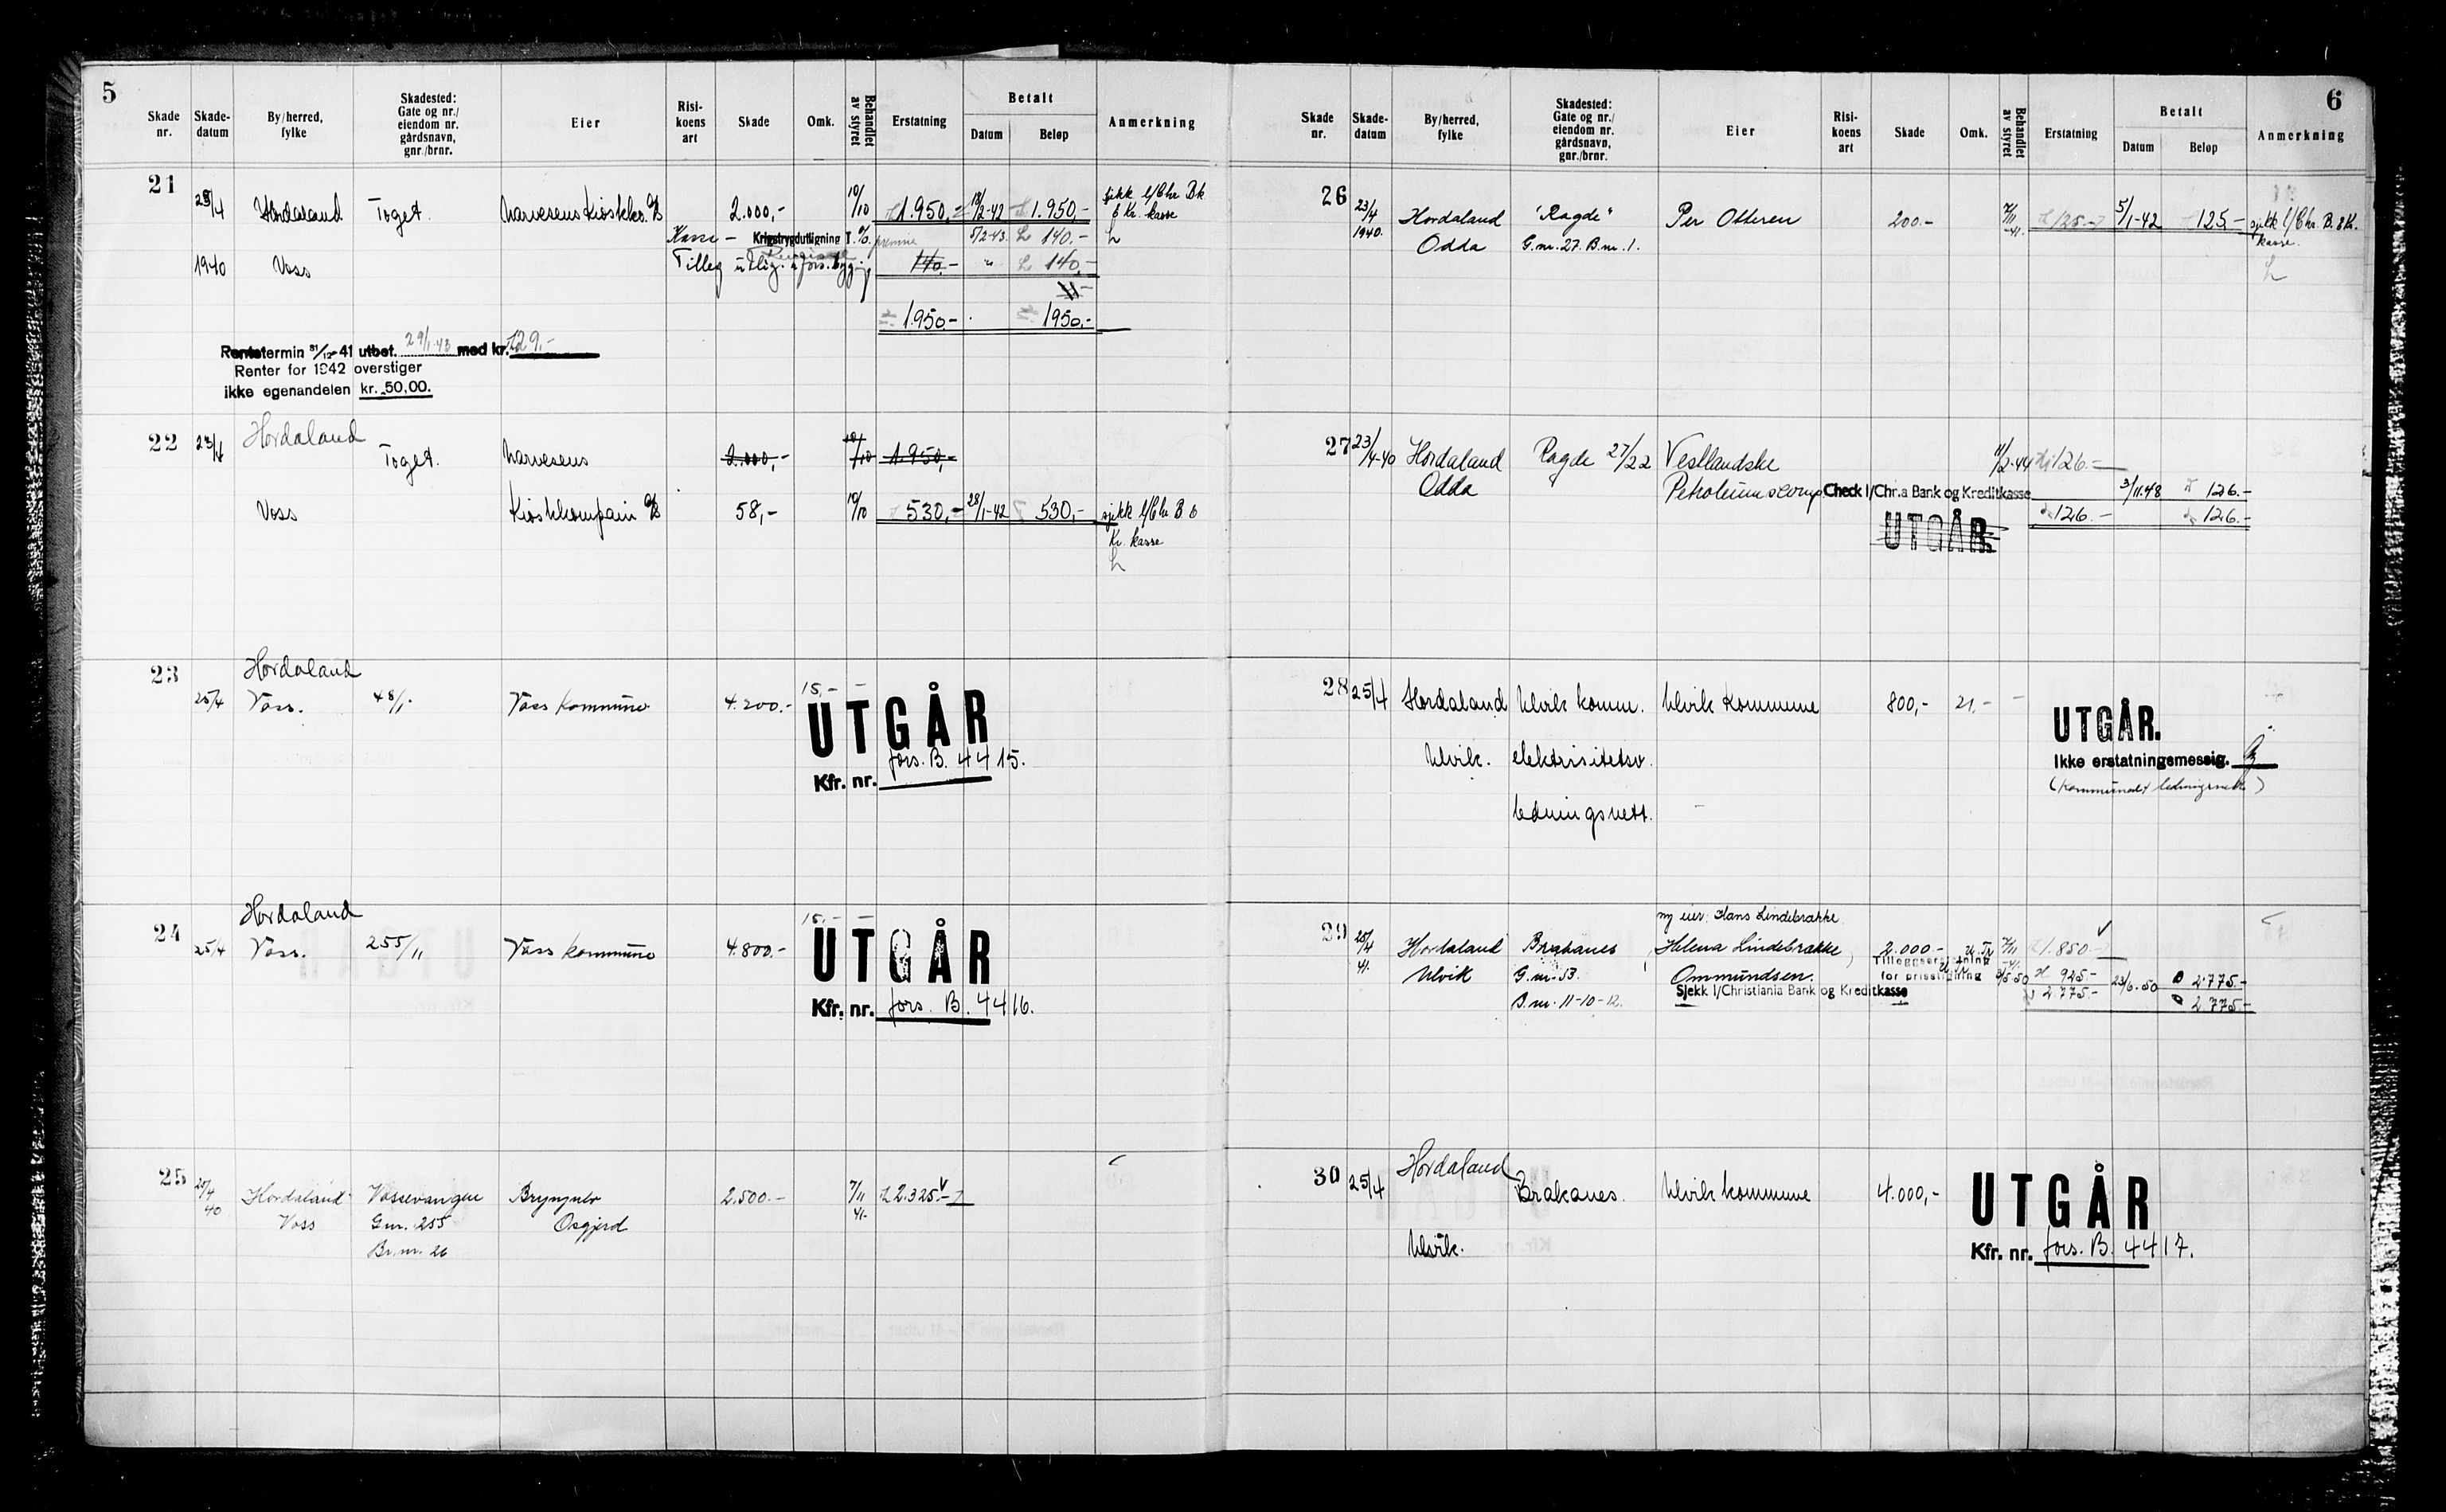 5
Skade nr.
Skade-datum
By/herred, fylke
Skadested: Gate og nr./ eiendom nr. gårdsnavn, gnr./brnr.
Eier
Risi-koens art
Skade
Omk.
Behandlet av styret
Erstatning
Betalt
Datum
Beløp
Anmerkning
21
23/4 Hordaland Toget. Narvesens Kioskko. A/S 2.000,- 10/10 1.950,- 18/2-42 1.950,- sjekk l/Chr Bk
& Kr. kasse
Kasse - Krigstrygdutligning T. % premie 5/2-43. 140.-
1940 Voss Tilleg utlig. a fors. bygning 140.- " 140.-
1.950.- 1950.-
Rentetermin 31/12-41 utbet. 29/1-43 med kr. 129.-
Renter for 1942 overstiger
ikke egenandelen kr. 50,00.
22 23/4 Hordaland
Toget. Narvesens 2.000,- 10/10 1.950,-
Voss Kioskkompani A/S 58,- 10/10 530,- 28/1-42 530,- sjekk l/Chr B &
Kr. kasse
23 Hordaland
25/4 Voss. 48/1. Voss kommune 4.200.- 15,- -
UTGÅR
Kfr. nr. fors. B. 4415.
24 Hordaland
25/4 Voss. 255/11 Voss kommune 4.800.- 15,- -
UTGÅR
Kfr. nr. fors. B. 4416.
25 25/4 40 Hordaland Vossevangen Bryngulv 2.500.- 7/11 41. 2.325.-
Voss Gnr. 255 Osgjerd
Br.nr. 26
6
Skade nr.
Skade-datum
By/herred, fylke
Skadested: Gate og nr./ eiendom nr. gårdsnavn, gnr./brnr.
Eier
Risi-koens art
Skade
Omk.
Behandlet av styret
Erstatning
Betalt
Datum
Beløp
Anmerkning
26 23/4 1940. Hordaland "Ragde" Per Otteren 200.- 7/11 -41. 125.- 5/1-42 125.- sjekk l/Chr. B. & Kr.
Odda G.nr. 27. B.nr. 1. kasse.
27 23/4-40 Hordaland Ragde 27/22 Vestlandske 11/2-44 126.-
Odda Petroleumscomp Check l/Chr.a Bank og Kreditkasse 3/11.48 126.-
126.- 126.-
UTGÅR.
28 25/4 Hordaland Ulvik komm. Ulvik Kommune 800,- 21,- -
Ulvik. elektrisitetsv.
ledningsnett.
UTGÅR.
Ikke erstatningsmessig.
(Kommunalt ledningsnett)
29 ny eier: Hans Lindebrække
25/4 41. Hordaland Brakanes (Helena Lindebrække) 2.000.- 7/11 -41. 1.850.-
Ulvik G.nr. 53. Ommundsen. Tilleggserstatning for prisstigning 3/5-50 925.- 23/6.50 2.775.-
B.nr. 11-10-12. Sjekk l/Christiania Bank og Kreditkasse 2.775.- 2.775.-
30 25/4 Hordaland
Brakanes. Ulvik kommune 4.000,-
Ulvik.
UTGÅR
Kfr. nr. fors. B. 4417.